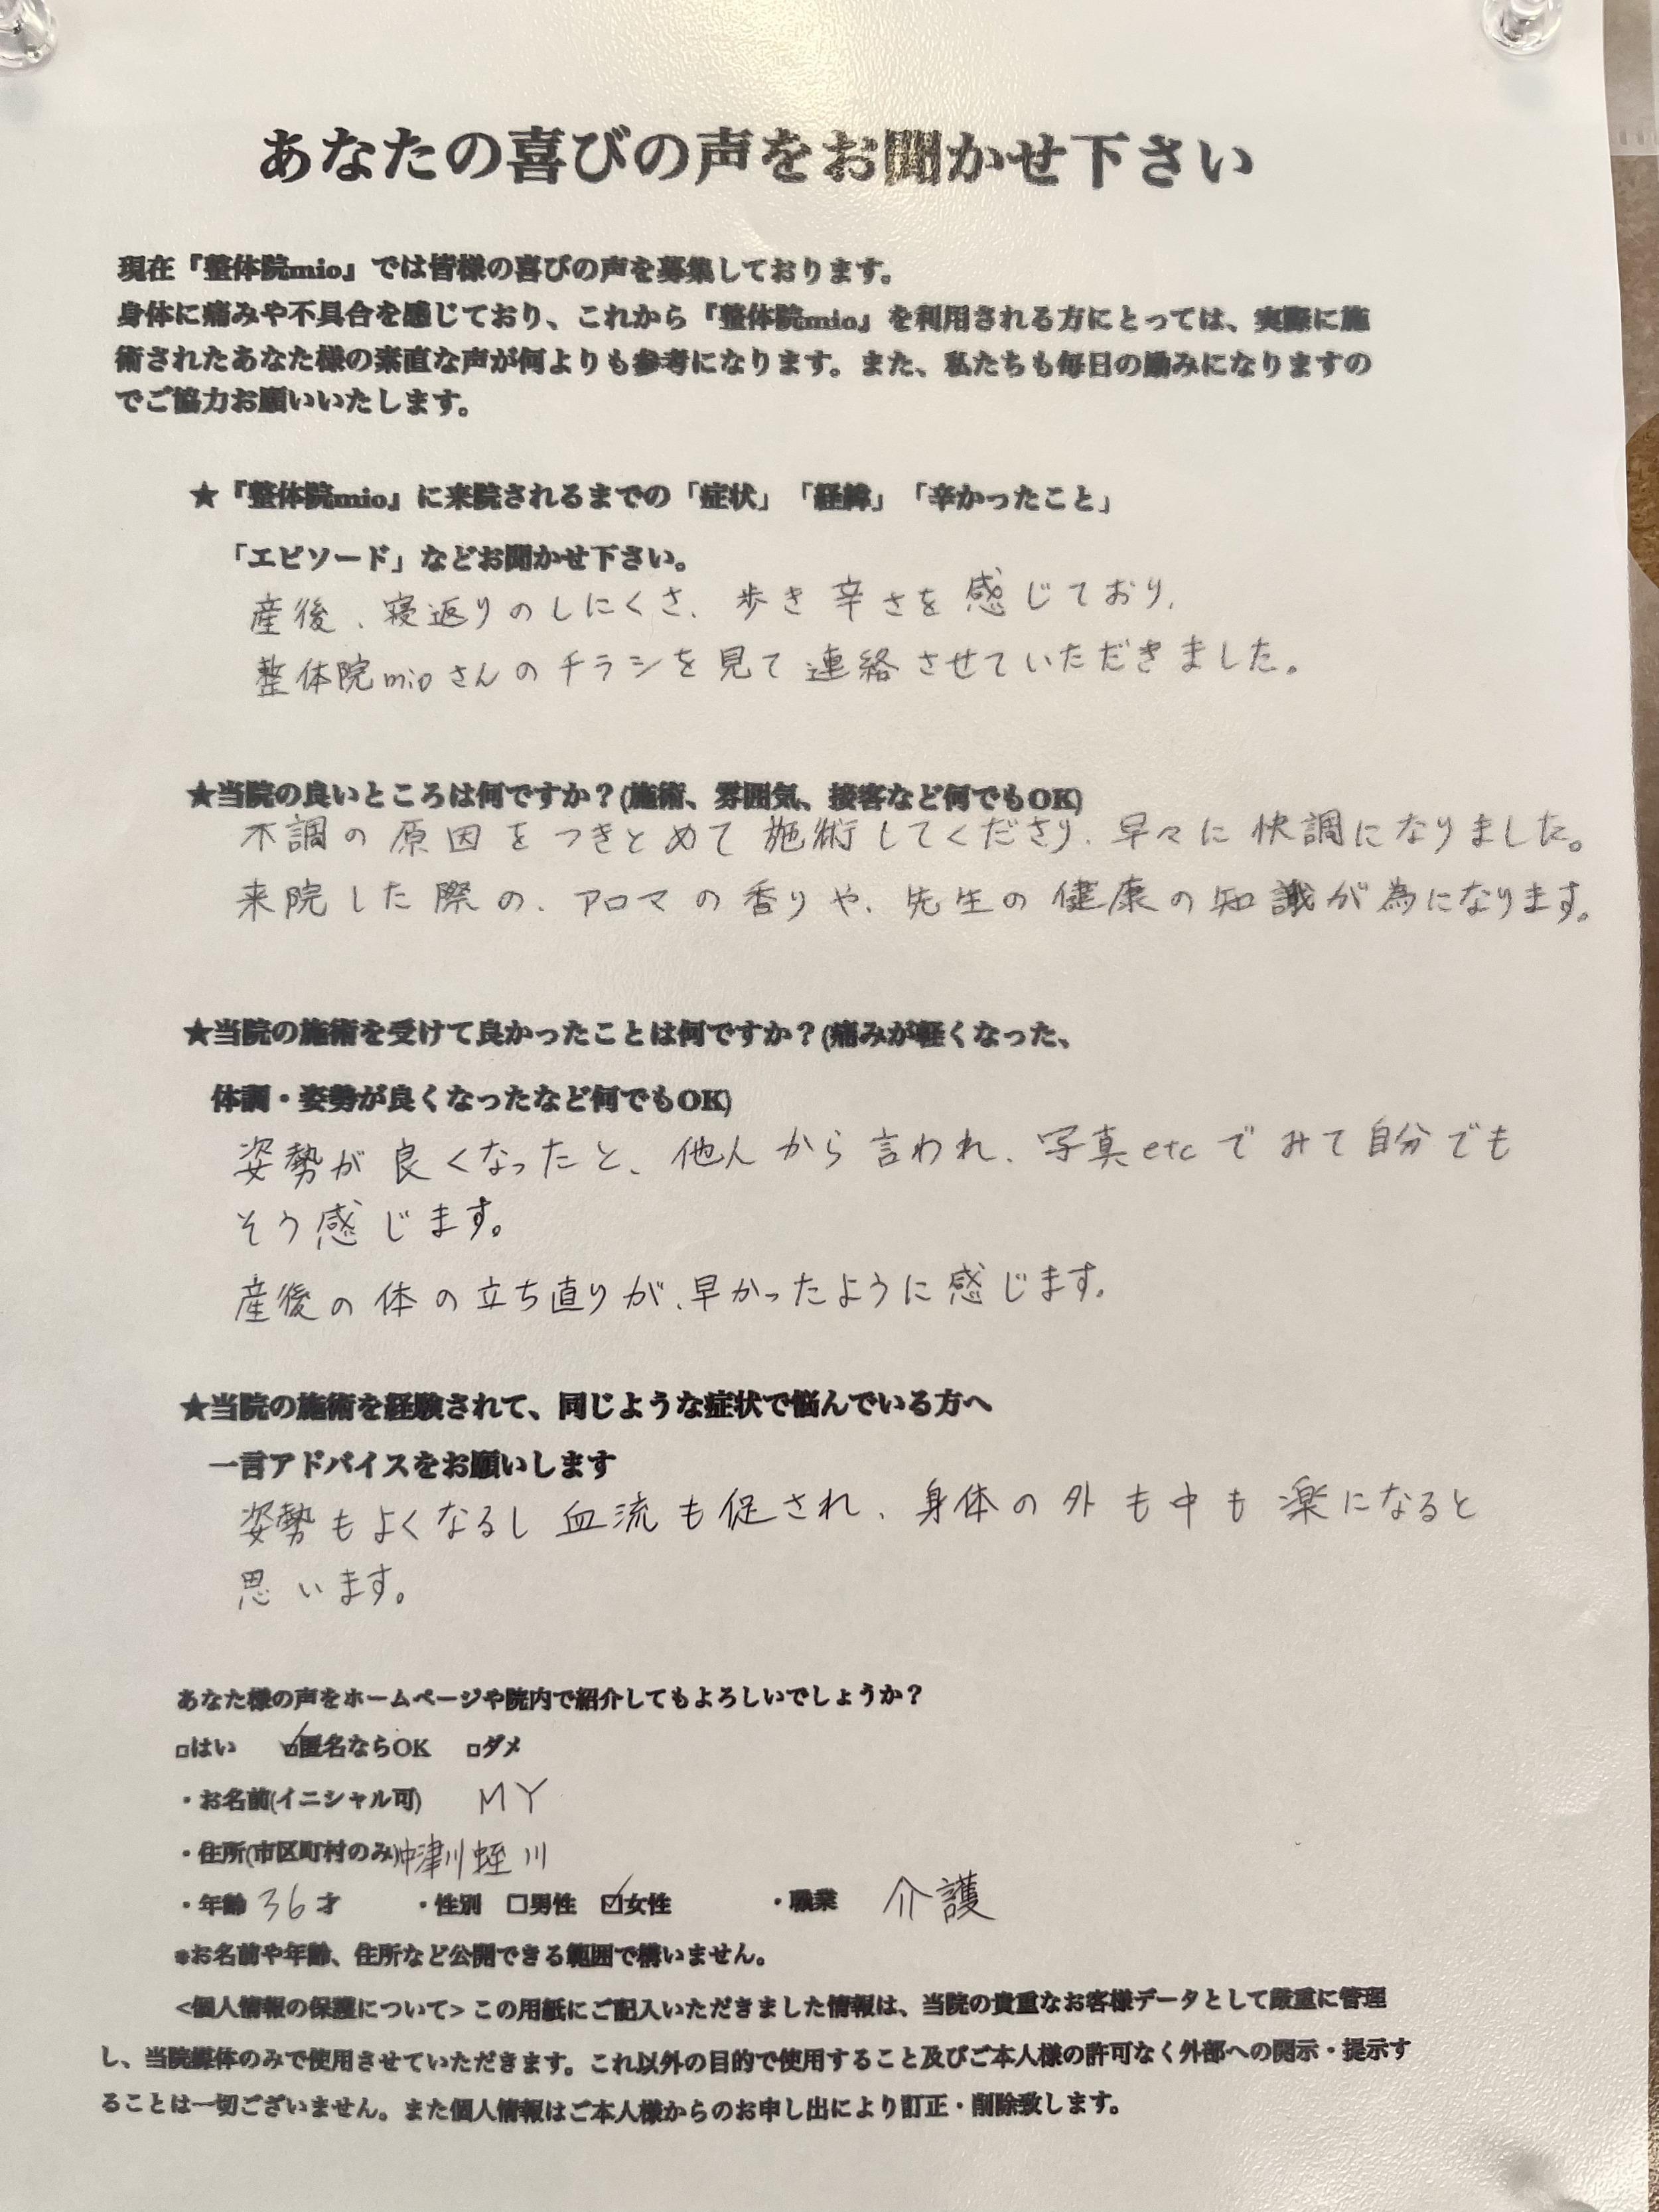 あなたの喜びの声をお聞かせ下さい
現在『整体院mio』では皆様の喜びの声を募集しております。
身体に痛みや不具合を感じており、これから『整体院mio』を利用される方にとっては、実際に施
術されたあなた様の素直な声が何よりも参考になります。また、私たちも毎日の励みになりますの
でご協力お願いいたします。
★『整体院mio』に来院されるまでの「症状」「経緯」「辛かったこと」
「エピソード」などお聞かせ下さい。
産後、寝返りのしにくさ、歩き辛さを感じており、
整体院mioさんのチラシを見て連絡させていただきました。
★当院の良いところは何ですか？(施術、雰囲気、接客など何でもOK)
不調の原因をつきとめて施術してくださり、早々に快調になりました。
来院した際の、アロマの香りや、先生の健康の知識が為になります。
★当院の施術を受けて良かったことは何ですか？(痛みが軽くなった、
体調・姿勢が良くなったなど何でもOK)
姿勢が良くなったと、他人から言われ、写真etcでみて自分でも
そう感じます。
産後の体の立ち直りが、早かったように感じます。
★当院の施術を経験されて、同じような症状で悩んでいる方へ
一言アドバイスをお願いします
姿勢もよくなるし血流も促され、身体の外も中も楽になると
思います。
あなた様の声をホームページや院内で紹介してもよろしいでしょうか？
□はい ☑匿名ならOK □ダメ
・お名前(イニシャル可) MY
・住所(市区町村のみ)中津川蛭川
・年齢 36才 ・性別 □男性 ☑女性 ・職業 介護
※お名前や年齢、住所など公開できる範囲で構いません。
<個人情報の保護について> この用紙にご記入いただきました情報は、当院の貴重なお客様データとして厳重に管理
し、当院媒体のみで使用させていただきます。これ以外の目的で使用すること及びご本人様の許可なく外部への開示・提示す
ることは一切ございません。また個人情報はご本人様からのお申し出により訂正・削除致します。